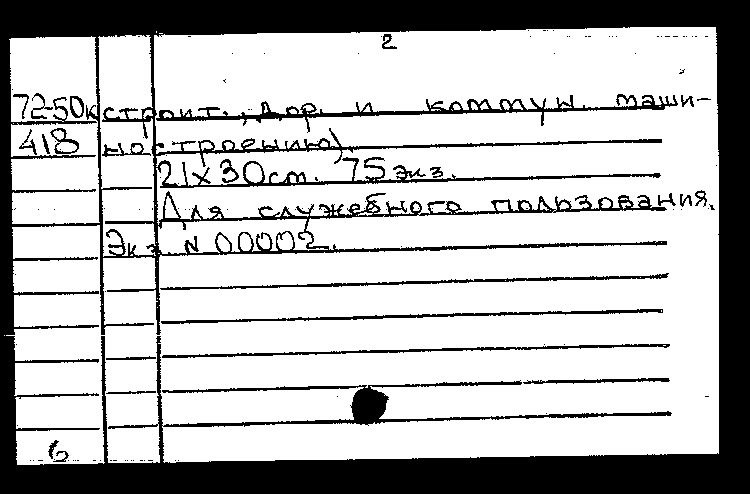 2
72-50к строит., дор. и коммун. маши-
418 ностроению).
21х30см. 75 экз.
Для служебного пользования.
Экз. N 00002.
6